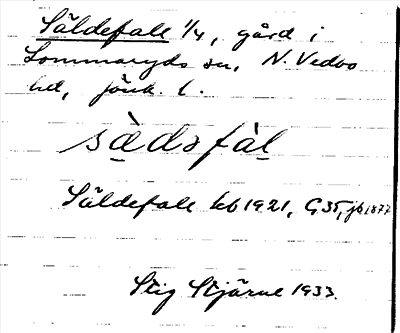 Säldefall 1/4, gård i
Lommaryds sn, N. Vedbo
hd, Jönk. l.
sàdəfàl
Säldefall kb 1921, G35, jb 1877
Stig Stjärne 1933.